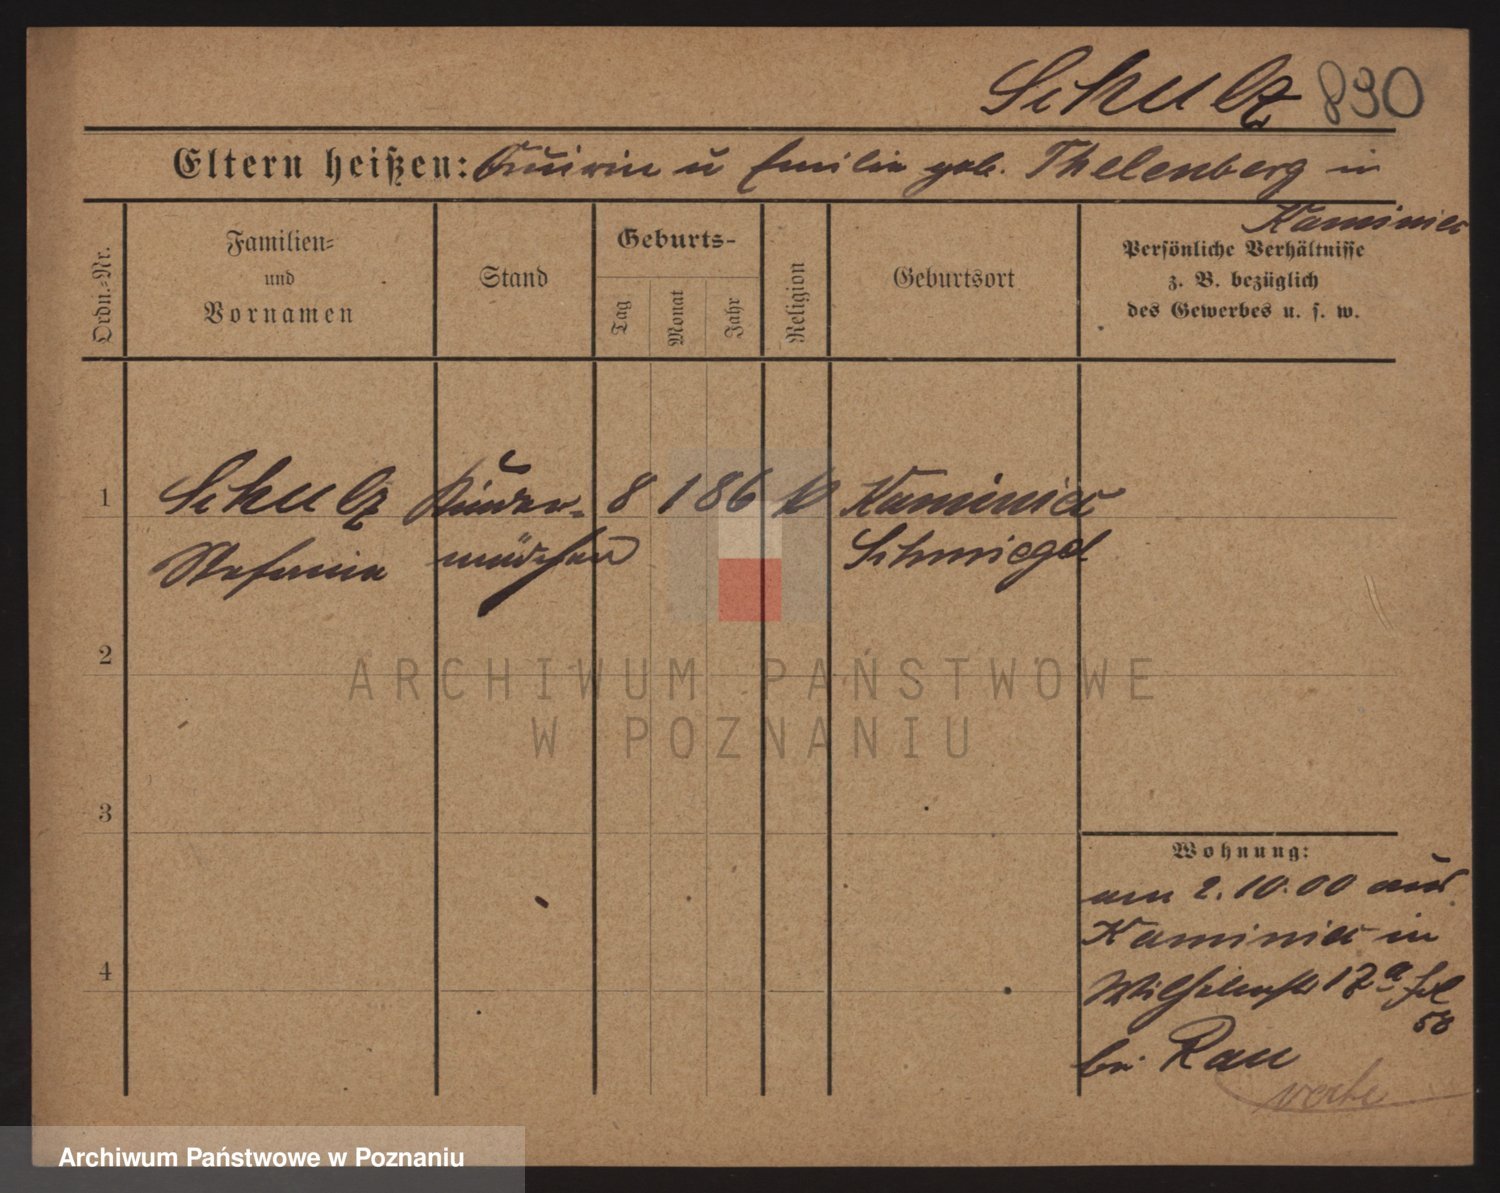 Schulz 890
Eltern heißen: Quirin u Emilie geb. Thelenberg in
Kaminiec
Ordn.-Nr.
Familien-
und
Vornamen
Stand
Geburts-
Tag
Monat
Jahr
Religion
Geburtsort
Persönliche Verhältnisse
z. B. bezüglich
des Gewerbes u. s. w.
1 Schulz Kinder- 8 1 86 k Kaminiec
Stefanie mädchen Schmiegel
2
ARCHIWUM PAŃSTWOWE
W POZNANIU
3
4
Wohnung:
am 2.10.00 aus
Kaminiec in
Wilhelmstr 17 a
58
bei Rau
Archiwum Państwowe w Poznaniu